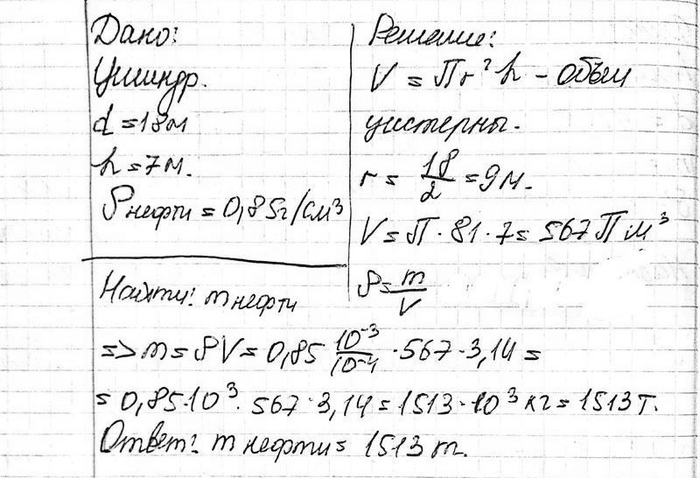 Дано:
Цилиндр.
d = 18м
h = 7м.
ρ нефти = 0,85г/см³
Найти: m нефти
Решение:
V = Пr²h - объём
цистерны.
r = 18/2 = 9м.
V = П · 81 · 7 = 567 П м³
ρ = m/V
=> m = ρV = 0,85 10⁻³/10⁻⁴ · 567 · 3,14 =
= 0,85·10³ · 567 · 3,14 = 1513 · 10³ кг = 1513 т.
Ответ: m нефти = 1513 т.